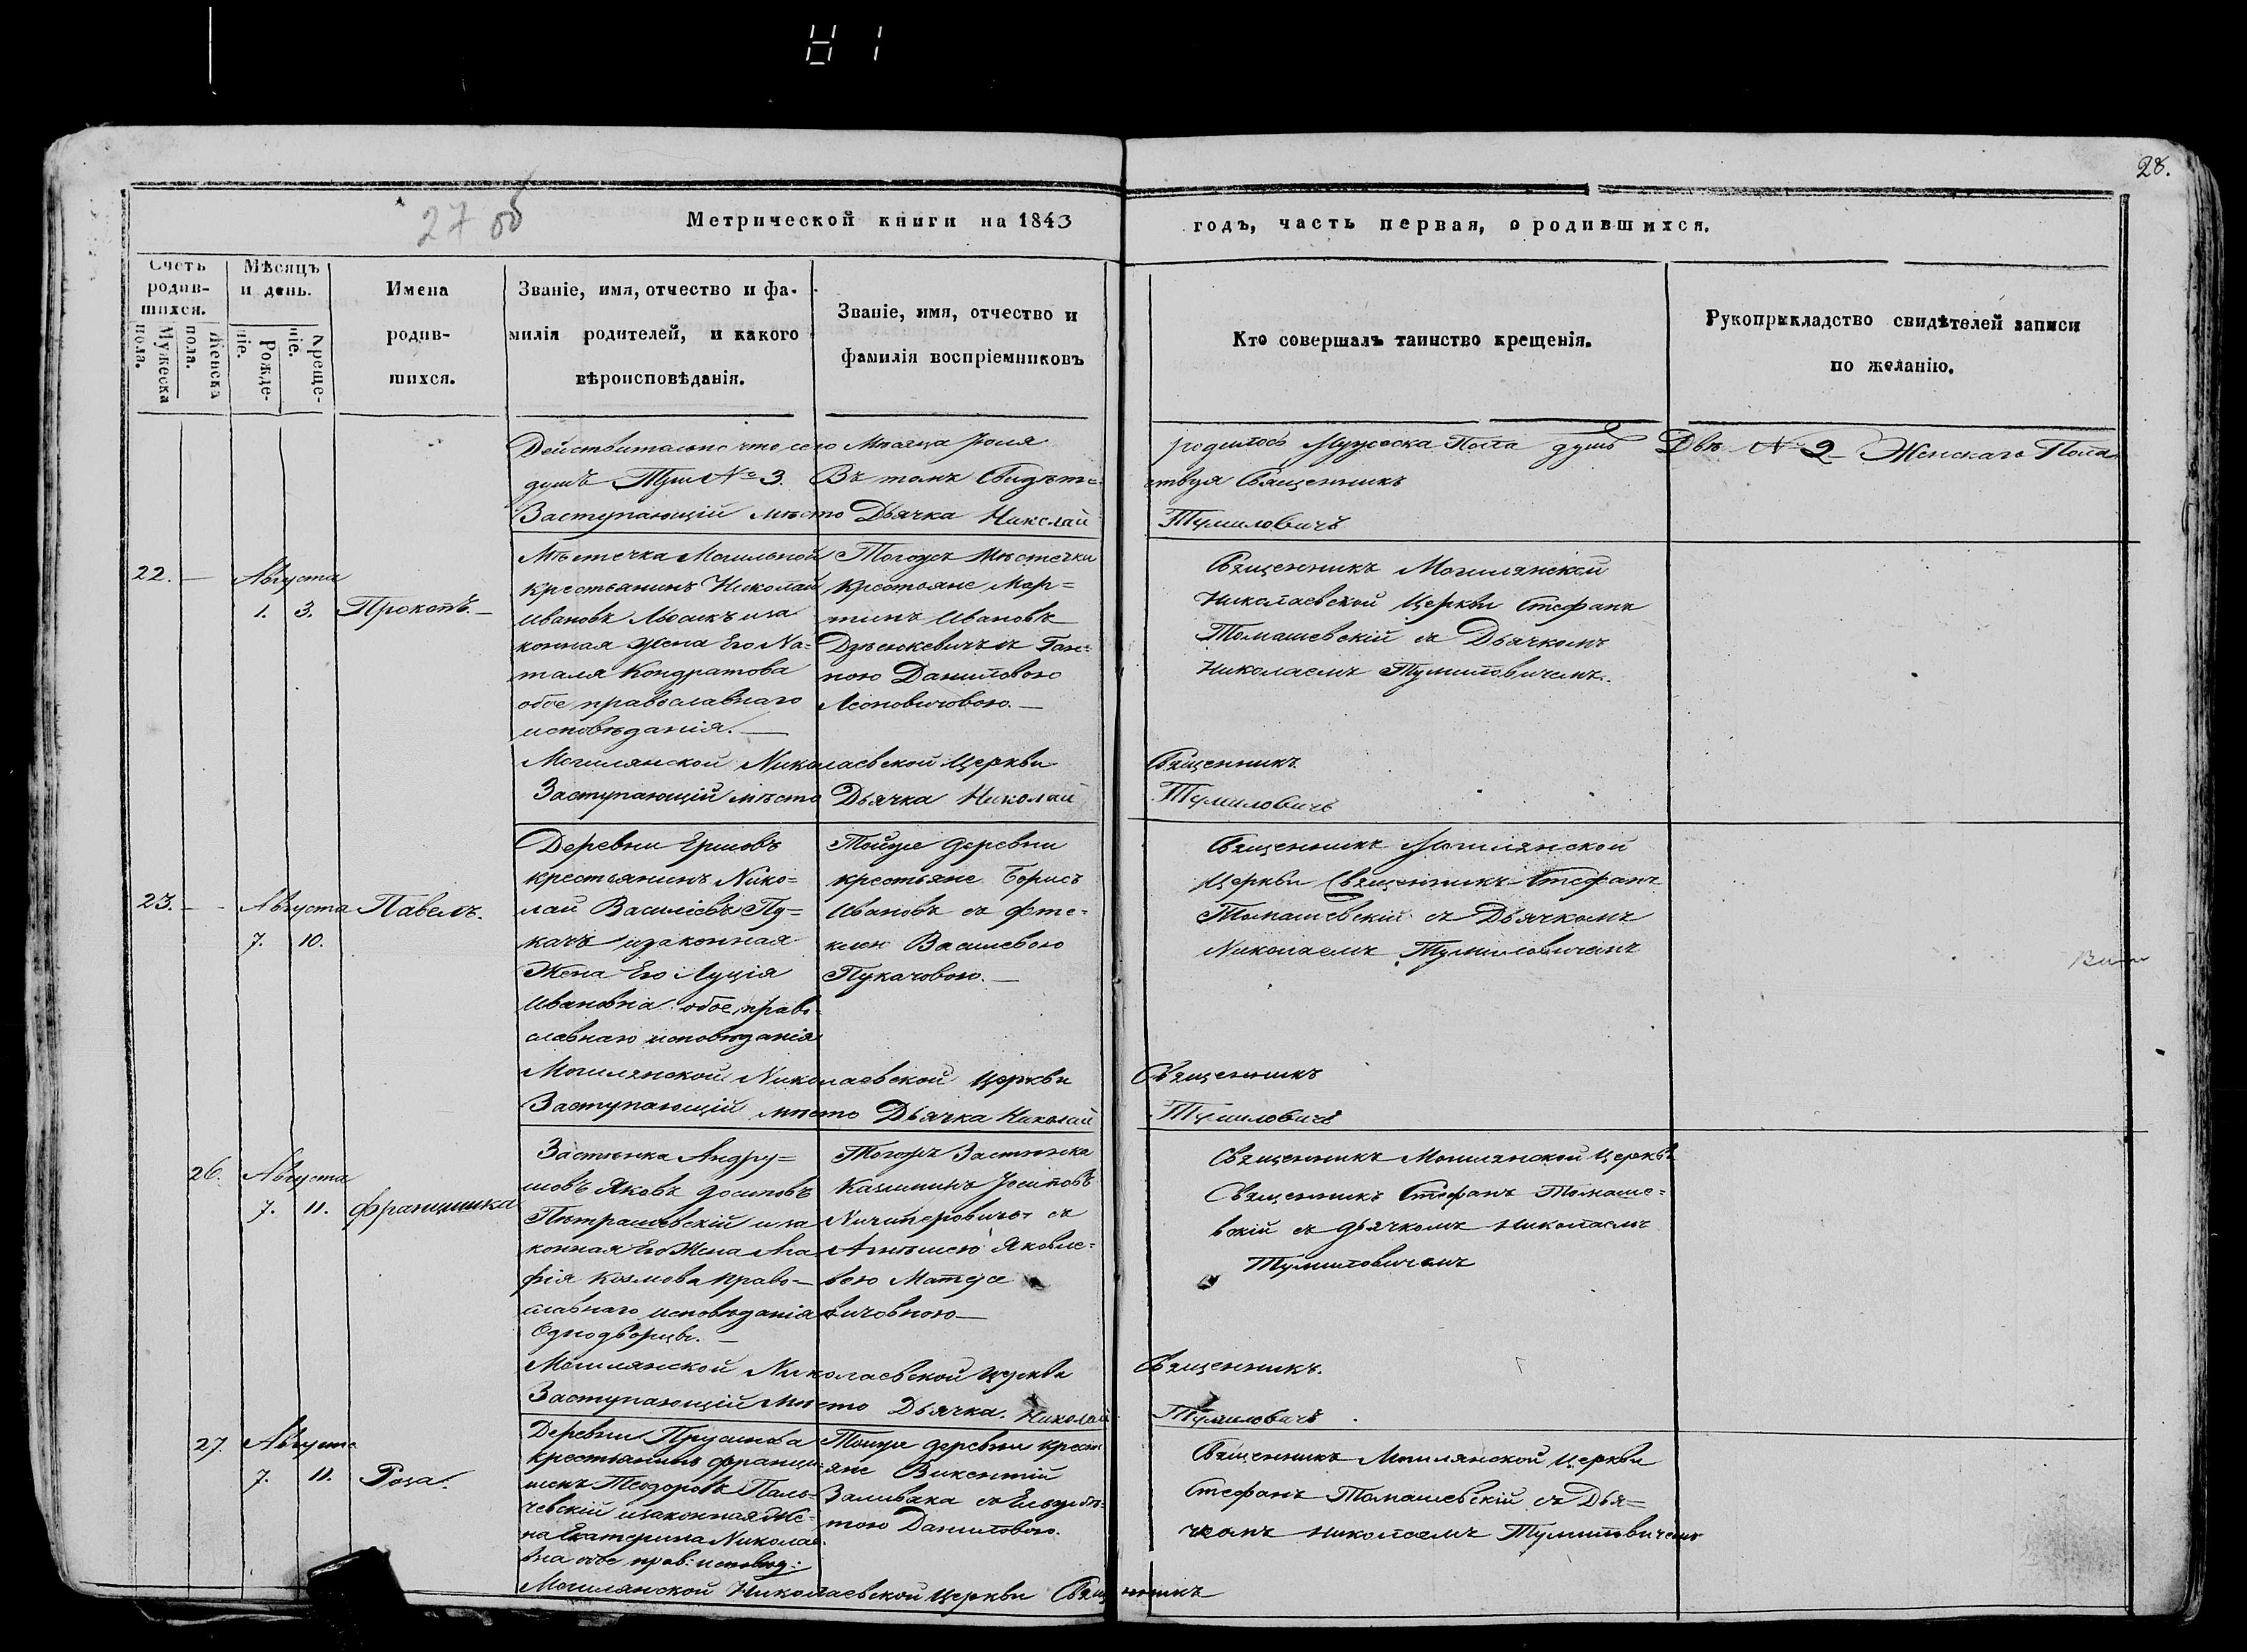 28.
27 об
Метрической книги на 1843
годъ, часть первая, о родившихся.
Счетъ родив-шихся.
Мужеска пола.
Женска пола.
Мѣсяцъ и день.
Рожде-ніе.
Креще-ніе.
Имена
родив-
шихся.
Званіе, имя, отчество и фа-
милія родителей, и какого
вѣроисповѣданія.
Званіе, имя, отчество и
фамилія воспріемниковъ
Кто совершалъ таинство крещенія.
Рукоприкладство свидѣтелей записи
по желанію.
Действительно что сего Мѣсяца Іюля родилось Мужеска Пола душъ Двѣ № 2 Женскаго Пола
душъ Три № 3. Въ томъ Свидѣте-ствуя Священникъ
Заступающій мѣсто Дьячка Николай Тумиловичъ
22. —
Августа
1. 3.
Прокопъ. —
Мѣстечка Могильной
Крестьянинъ Николай
Ивановъ
конная Жена Его На-
таля Кондратова
обое православнаго
исповѣданія. —
Тогожъ Мѣстечка
Крестьяне Мар-
тинъ Ивановъ
Дзѣнкевичъ съ Ган-
ною Даниловою
Леоновичовою. —
Священникъ Могилянской
Николаевской Церкви Стефанъ
Томашевскій съ Дьячкомъ
Николаемъ Тумиловичемъ.
Могилянской Николаевской Церкви Священникъ
Заступающій мѣсто Дьячка Николай Тумиловичъ
23. —
Августа
7. 10.
Павелъ.
Деревни
крестьянинъ Нико-
лай Василіевъ Пу-
качъ изаконная
Жена Его Луція
Ивановна обое право-
славнаго исповѣданія
Тойже деревни
крестьяне Борисъ
Ивановъ съ Фте-
клею Васильевою
Пукачовою. —
Священникъ Могилянской
Церкви Священникъ Стефанъ
Томашевскій съ Дьячкомъ
Николаемъ Тумиловичемъ
Могилянской Николаевской Церкви Священникъ
Заступающій мѣсто Дьячка Николай Тумиловичъ
26.
Августа
7. 11.
Францишка
Застѣнка Андру-
шовъ Яковъ Осиповъ
Пѣтрашевскій иза
конная Его Жена Ага
фія Козмова право-
славнаго исповѣданія
Однодворцы. —
Тогожъ Застѣнка
Іосиповъ
съ
Яковле-
вою Матуса
вичовною —
Священникъ Могилянской Церкви
Священникъ Стефанъ Томаше-
вскій съ дьячкомъ Николаемъ
Тумиловичемъ
Могилянской Николаевской Церкви Священникъ.
Заступающій Мѣсто Дьячка. Николай Тумиловичъ
27.
Августа
7. 11.
Роза.
Деревни
крестьянинъ Франци-
шекъ Теодоровъ Пало-
чевскій изаконная Же-
на Екатерина Николае-
вна обое прав: исповед:
Тойже деревни крестья
яне Викентій
Заливака съ Ельзубѣ-
тою Даниловою.
Священникъ Могилянской Церкви
Стефанъ Томашевскій съ Дья-
чкомъ Николаемъ Тумиловичемъ
Могилянской Николаевской Церкви Священникъ